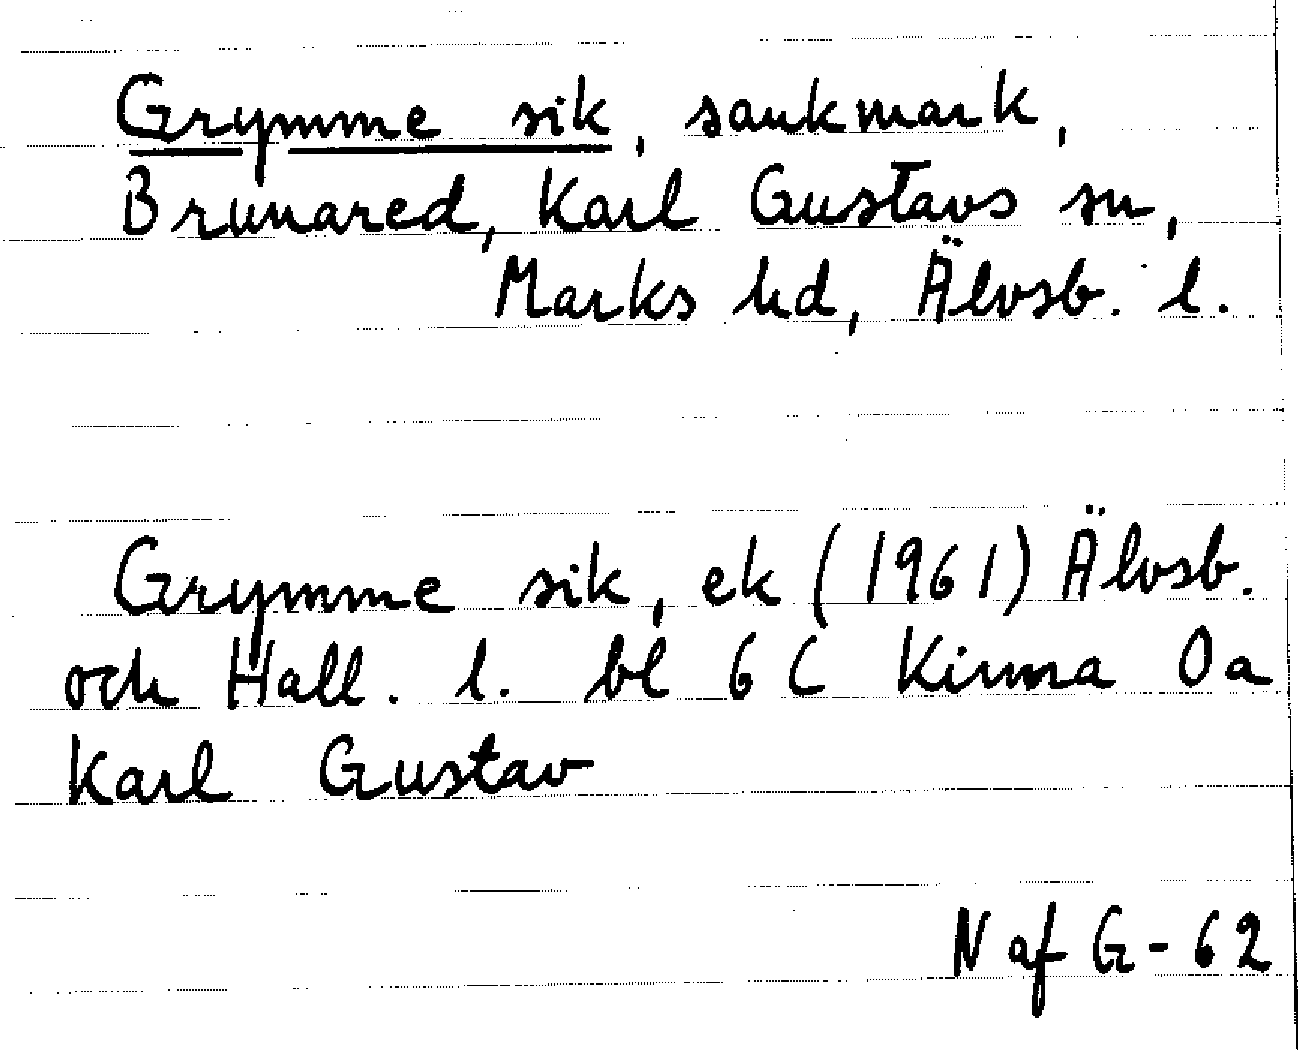 Grymme sik, sankmark,
Brunnared, Karl Gustavs sn,
Marks hd, Älvsb. l.
Grymme sik, ek (1961) Älvsb.
och Hall. l. bl 6 C Kinna 0a
Karl Gustav
N af G-62